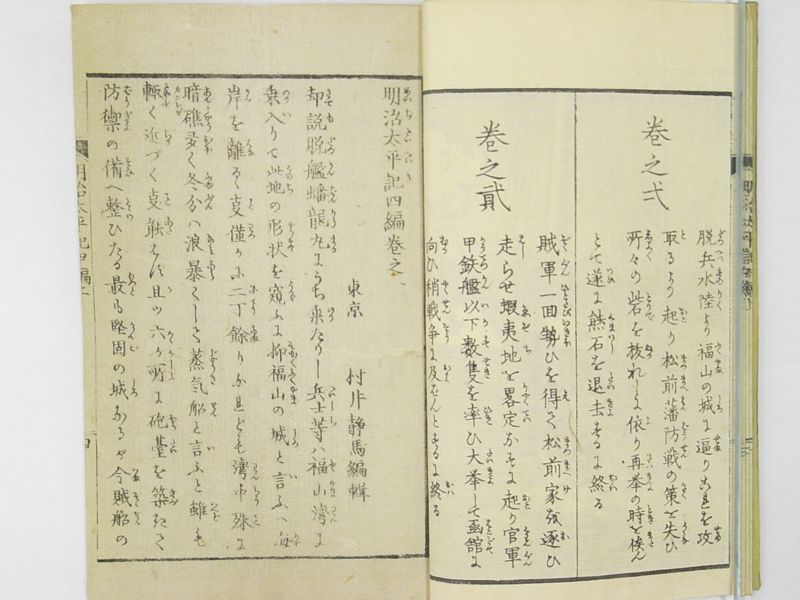 巻之弌
脱兵水陸より福山の城に逼り是を攻
取るより起り松前藩防戦の策を失ひ
所々の砦を抜れしに依り再挙の時を俟ん
とて遂に熊石を退去するに終る
巻之貳
賊軍一回勢ひを得て松前家を逐ひ
走らせ蝦夷地を畧定かするに起り官軍
甲鉄艦以下数隻を率ひ大挙して函館に
向ひ稍戦争に及ばんとするに終る
明治太平記四編巻之
東京 村井静馬編輯
却説脱艦蟠龍丸にうち乗たりし兵士等ハ福山湾に
乗入りて此地の形状を窺ふに抑福山の城と言ふハ海
岸を離るゝ事僅かに二丁餘りなれども湾中殊に
暗礁多く冬分ハ浪暴くして蒸気船と言ふと雖も
輙く近づく事能はず且ツ六か所に砲臺を築きて
防禦の備へ整ひたる最も堅固の城なるが今賊船の
明治太平記四編